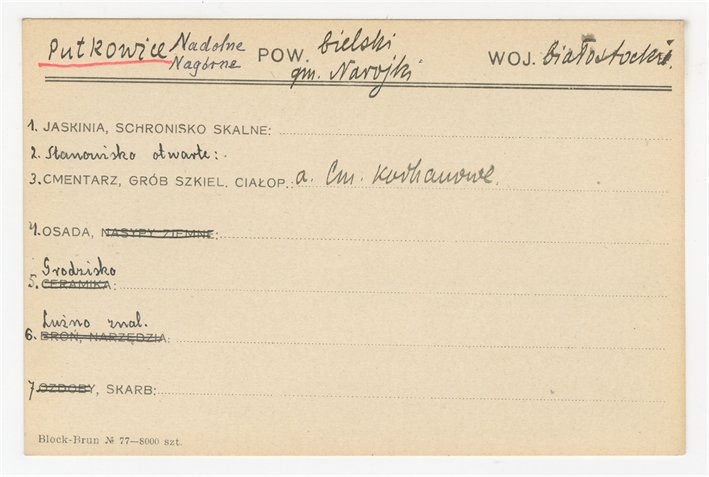 Putkowice Nadolne POW. bielski WOJ. białostockie.
Nagórne gm. Narojki
1. JASKINIA, SCHRONISKO SKALNE:
2. Stanowisko otwarte:
3. CMENTARZ, GRÓB SZKIEL. CIAŁOP.: a. Cm. kurhanowe.
4. OSADA, NASYPY ZIEMNE:
Grodzisko
5. CERAMIKA:
Luźno znal.
6. BROŃ, NARZĘDZIA:
7. OZDOBY, SKARB:
Block-Brun № 77—8000 szt.